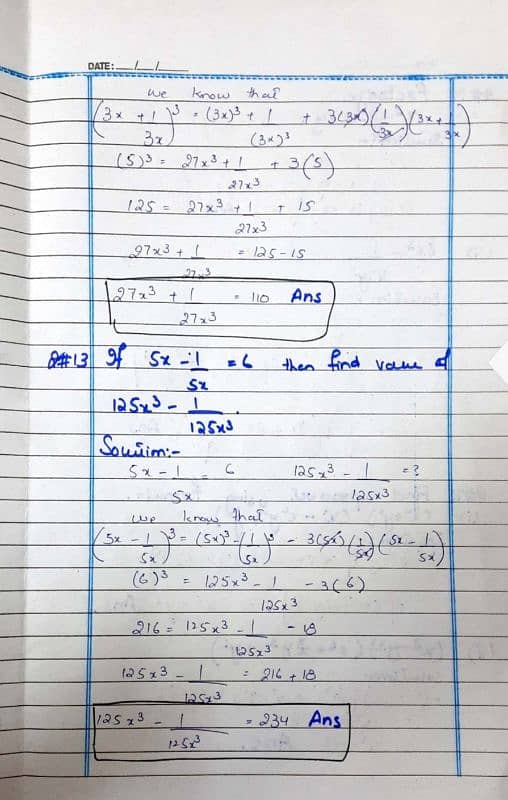 DATE: __/__/____
we know that
(3x + 1/3x)³ = (3x)³ + 1/(3x)³ + 3(3x)(1/3x)(3x + 1/3x)
(5)³ = 27x³ + 1/27x³ + 3(5)
125 = 27x³ + 1/27x³ + 15
27x³ + 1/27x³ = 125 - 15
27x³ + 1/27x³ = 110 Ans
Q#13 If 5x - 1/5x = 6 then find value of
125x³ - 1/125x³.
Soluuim:-
5x - 1/5x = 6 125x³ - 1/125x³ = ?
we know that
(5x - 1/5x)³ = (5x)³ - (1/5x)³ - 3(5x)(1/5x)(5x - 1/5x)
(6)³ = 125x³ - 1/125x³ - 3(6)
216 = 125x³ - 1/125x³ - 18
125x³ - 1/125x³ = 216 + 18
125x³ - 1/125x³ = 234 Ans